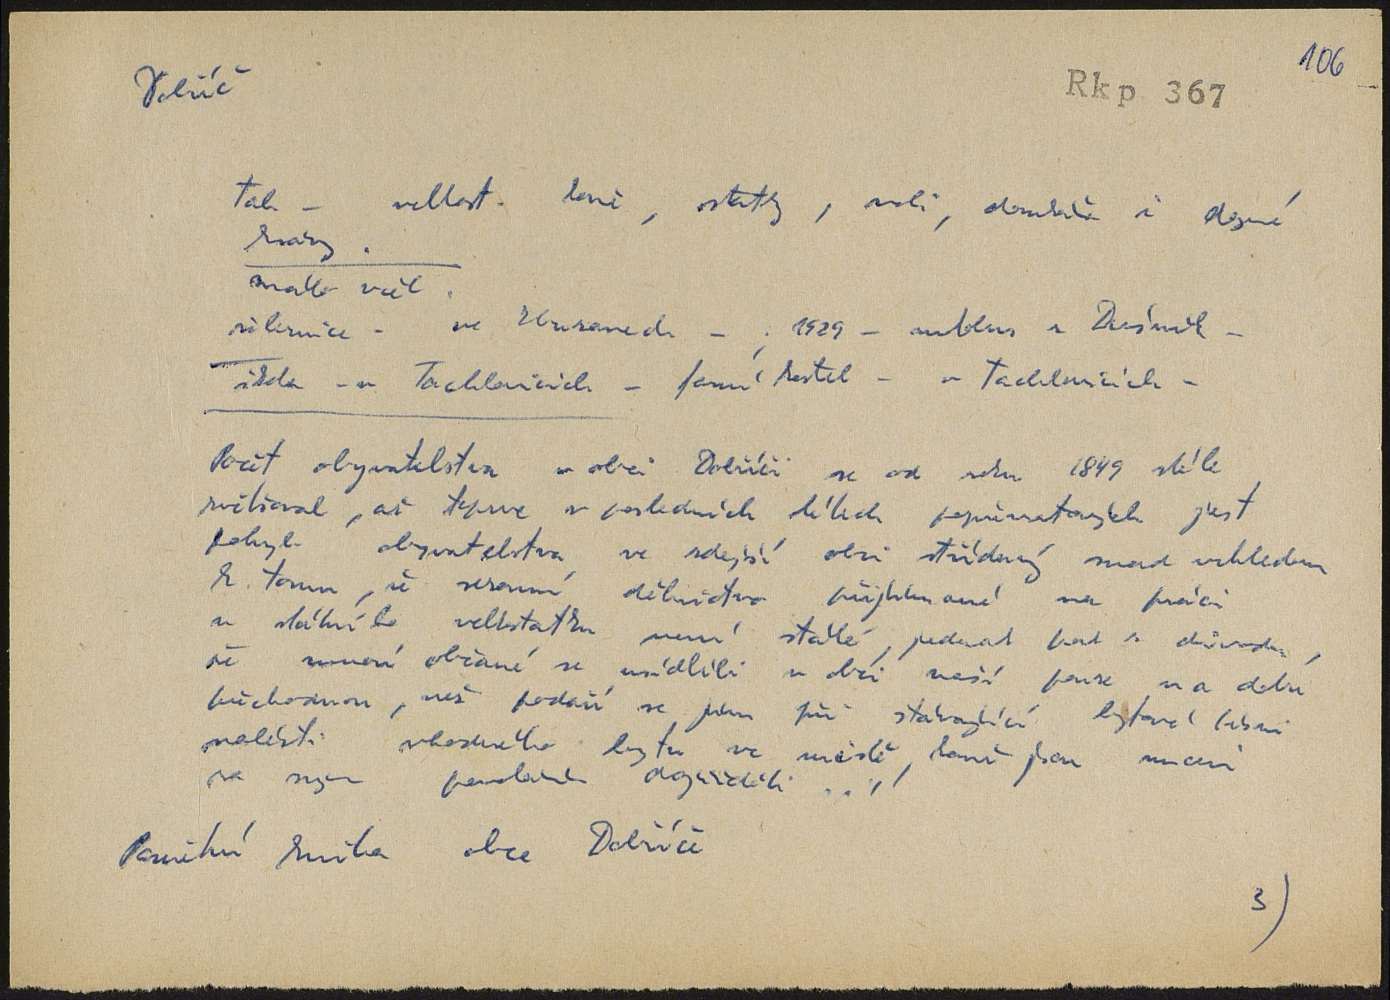 Dobříč
Rkp 367
106
tah - velkost. koně, statky, voli, domkáři i dojné
krávy.
málo včel.
silnice - ve Zbuzanech - ; 1929 - autobus z Dušník -
škola - v Tachlovicích - farní kostel - v Tachlovicích -
Počet obyvatelstva v obci Dobříči se od roku 1849 stále
zvětšoval, až teprve v posledních létech popřevratových jest
pohyb obyvatelstva ve zdejší obci střídavý snad vzhledem
k tomu, že sezonní dělnictvo přijímané na práci
u státního velkostatku není stálé, jednak pak z důvodu,
že mnozí občané se usídlili v obci naší pouze na dobu
přechodnou, než podaří se jim při stávající bytové tísni
nalézti vhodného bytu ve městě, kamž jsou nuceni
za svým povoláním dojížděti ...
Pamětní kniha obce Dobříče
3)